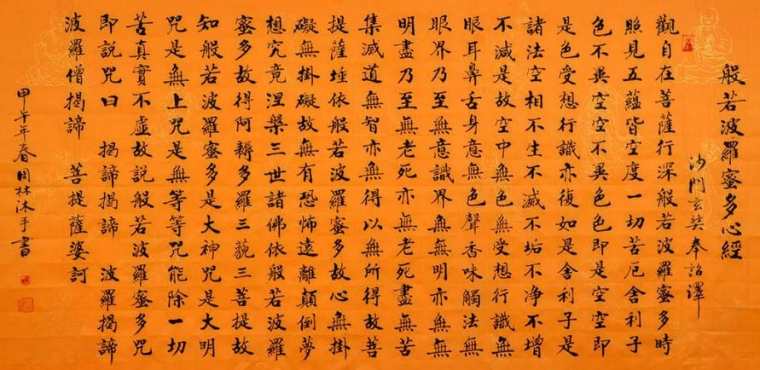 般若波羅蜜多心經
沙門玄奘奉詔譯
觀自在菩薩行深般若波羅蜜多時
照見五蘊皆空度一切苦厄舍利子
色不異空空不異色色即是空空即
是色受想行識亦復如是舍利子是
諸法空相不生不滅不垢不净不增
不減是故空中無色無受想行識無
眼耳鼻舌身意無色聲香味觸法無
眼界乃至無意識界無無明亦無無
明盡乃至無老死亦無老死盡無苦
集滅道無智亦無得以無所得故菩
提薩埵依般若波羅蜜多故心無掛
礙無掛礙故無有恐怖遠離顛倒夢
想究竟涅槃三世諸佛依般若波羅
蜜多故得阿耨多羅三藐三菩提故
知般若波羅蜜多是大神咒是大明
咒是無上咒是無等等咒能除一切
苦真實不虛故説般若波羅蜜多咒
即説咒曰 揭諦揭諦 波羅揭諦
波羅僧揭諦 菩提薩婆訶
甲午年春周林沐手書